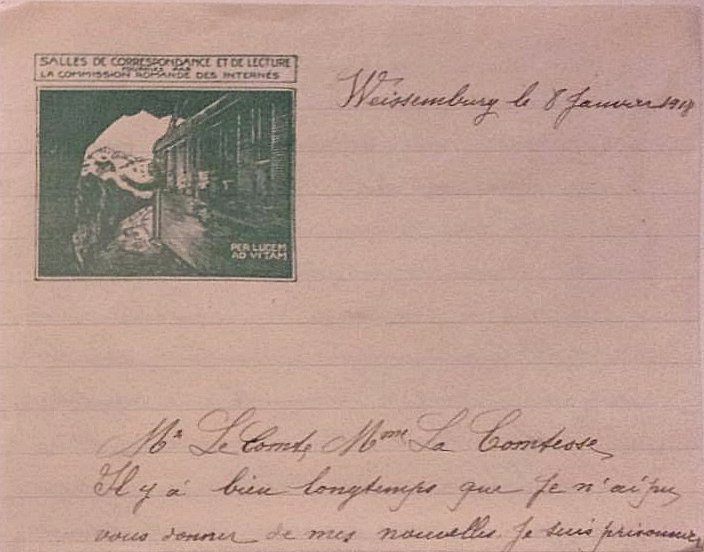 SALLES DE CORRESPONDANCE ET DE LECTURE
FOURNIES PAR
LA COMMISSION ROMANDE DES INTERNÉS
PER LUCEM
AD VITAM
Weissemburg le 8 Janvier 1918
Mr Le Comte, Mme La Comtesse,
Il y a bien longtemps que je n'ai pu
vous donner de mes nouvelles. Je suis prisonnier